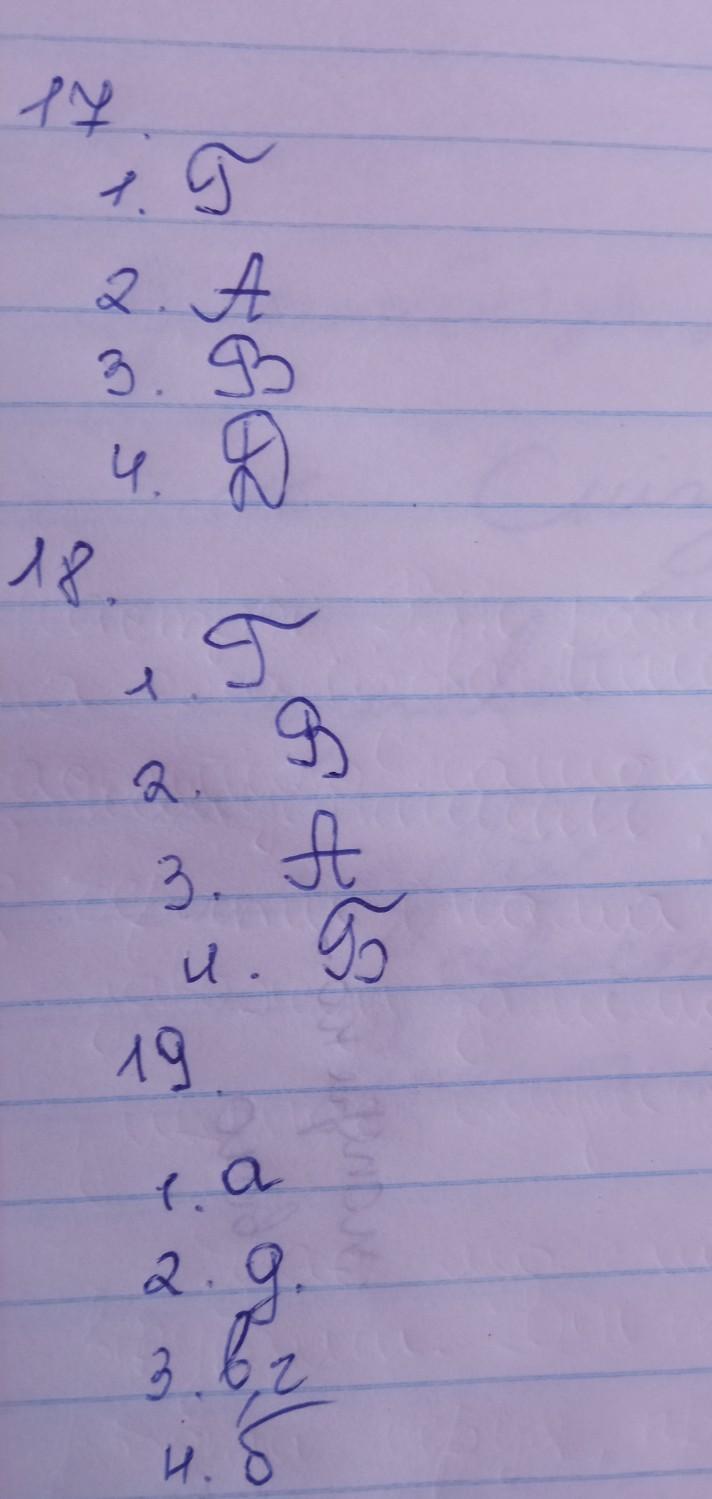 17.
1. Г
2. А
3. В
4. Д
18.
1. Г
2. В
3. А
4. Б
19.
1. а
2. д.
3. в, г
4. б